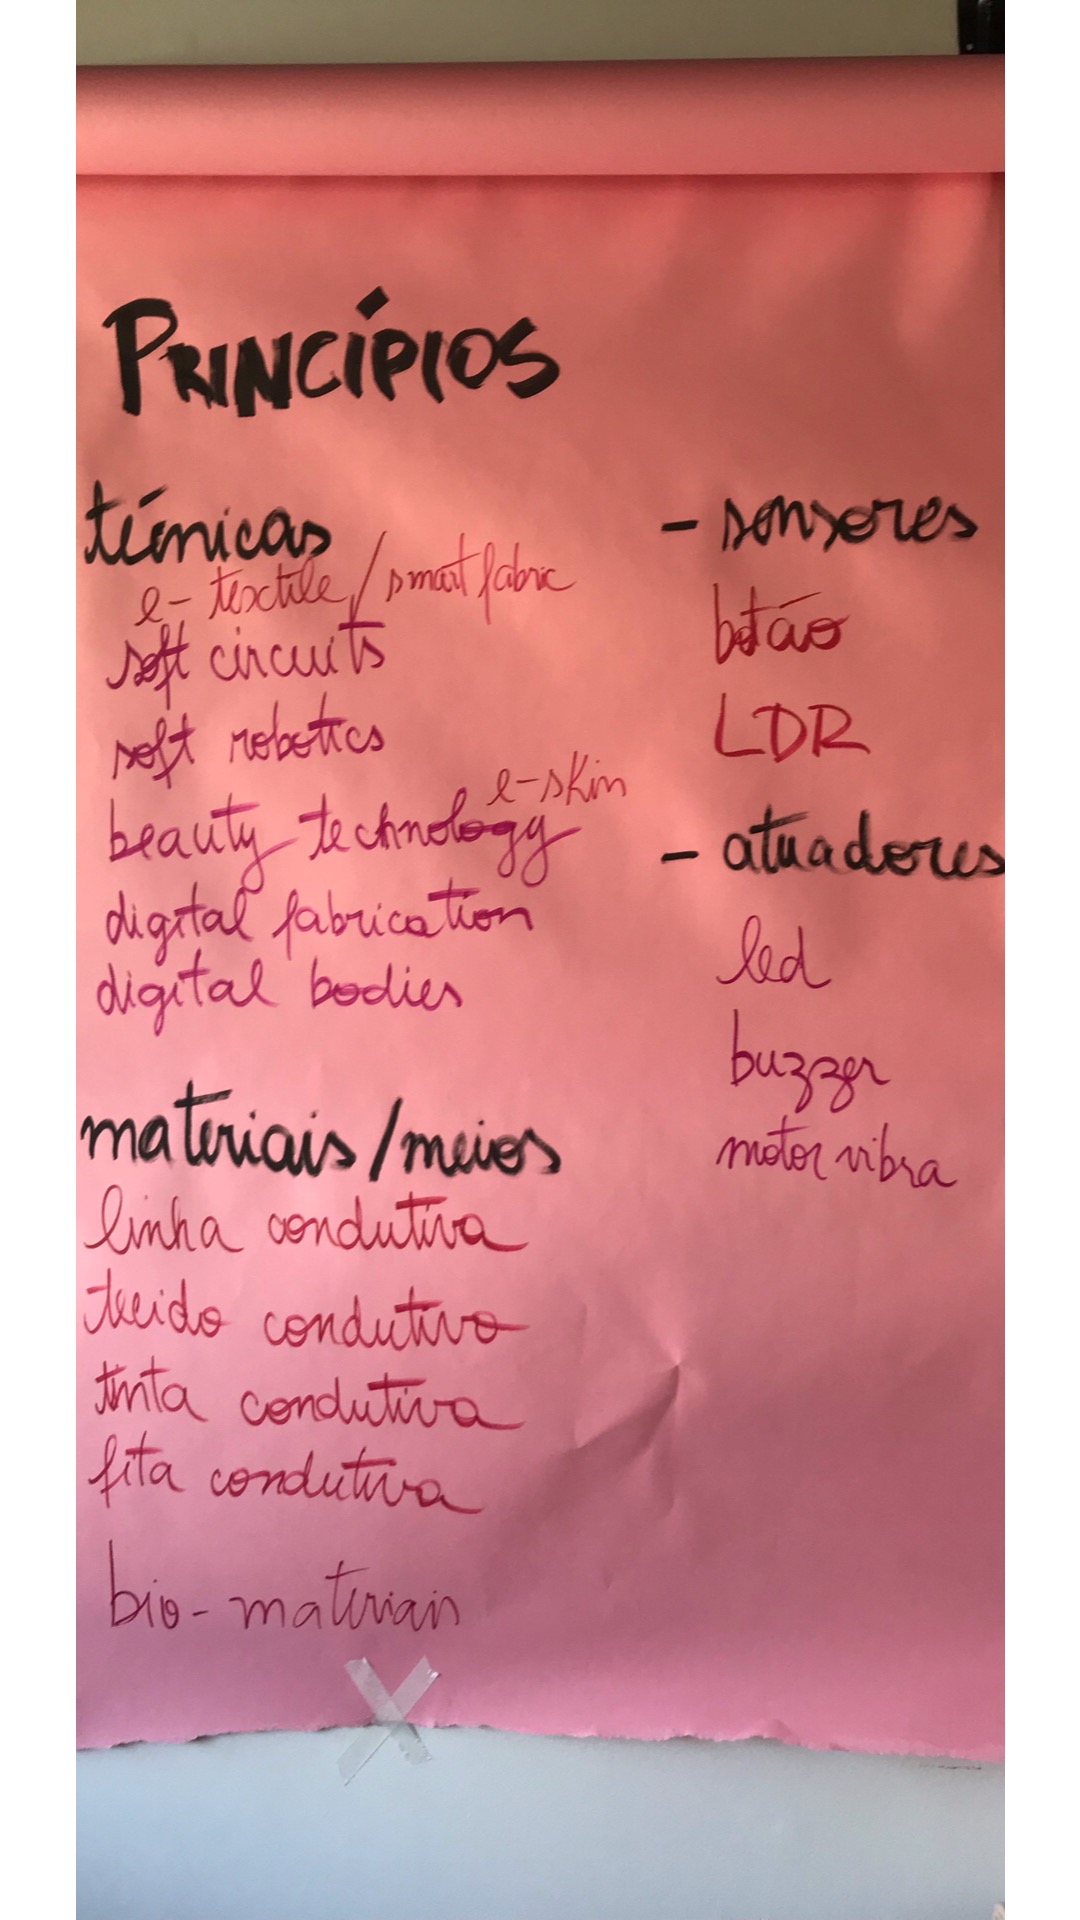 PRINCÍPIOS
técnicas
e-textile / smart fabric
soft circuits
soft robotics
beauty technology e-skin
digital fabrication
digital bodies
materiais/meios
linha condutiva
tecido condutivo
tinta condutiva
fita condutiva
bio-materiais
- sensores
botão
LDR
- atuadores
led
buzzer
motor vibra